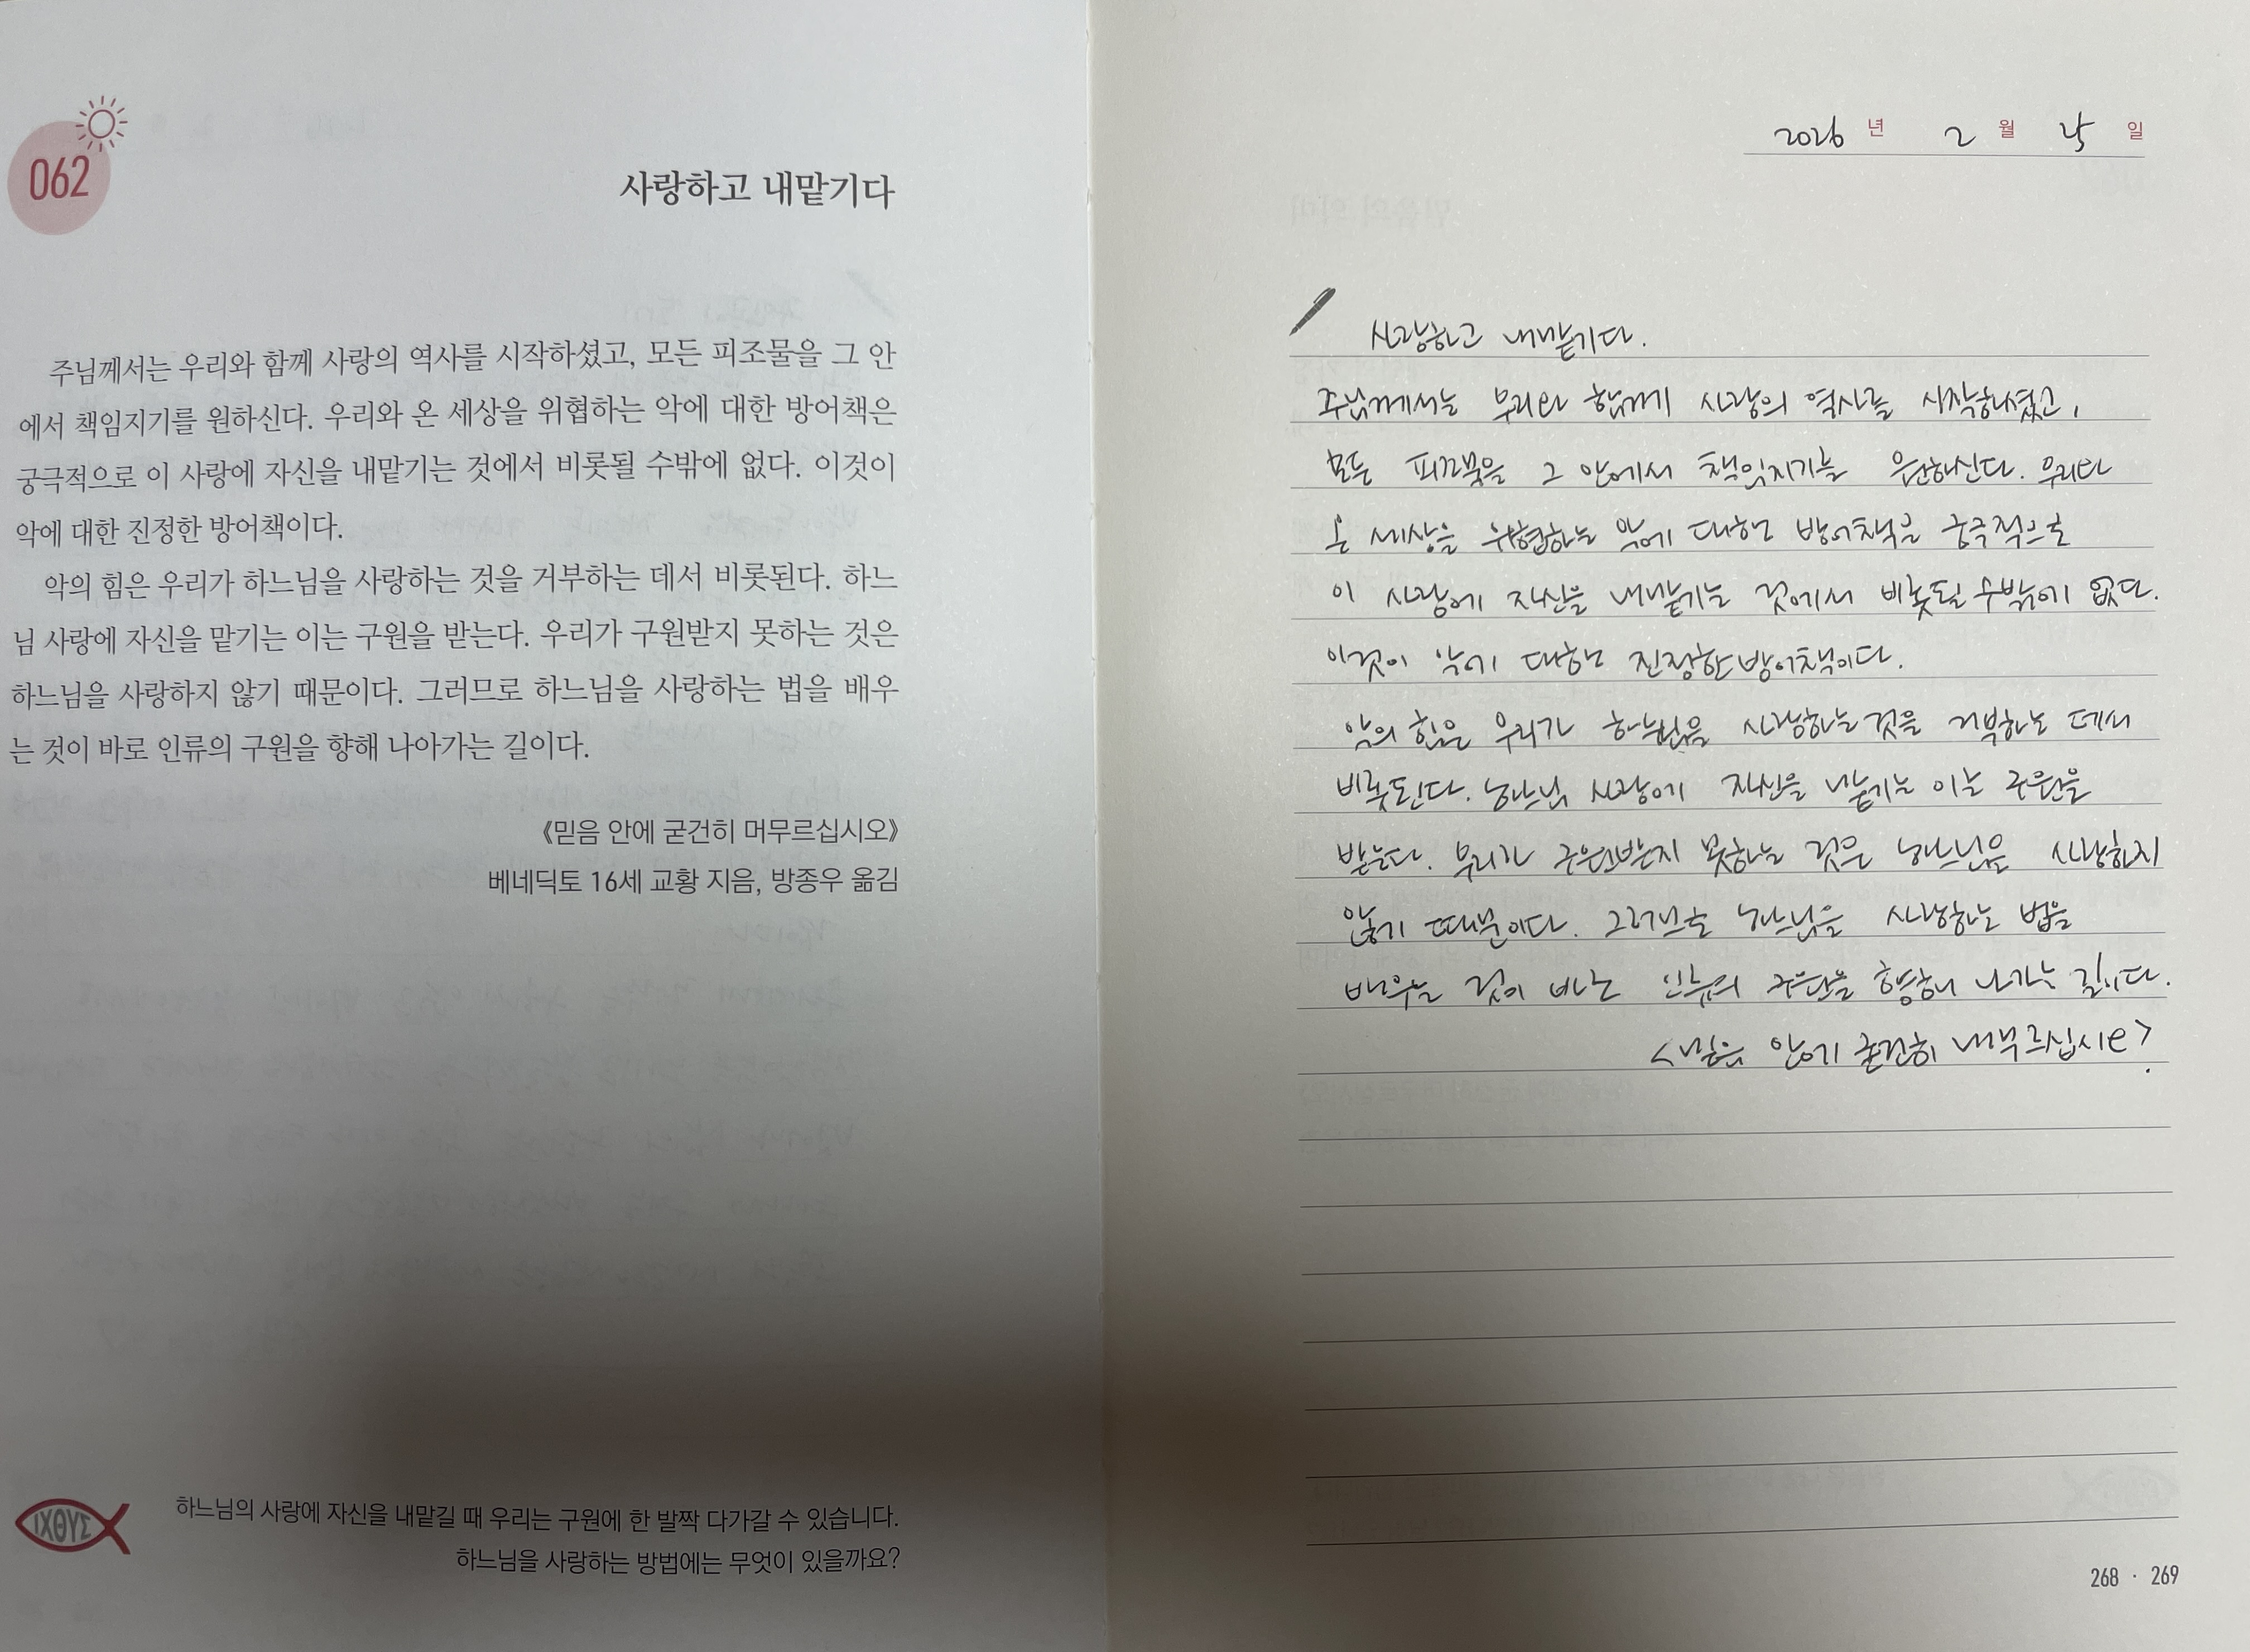 062
사랑하고 내맡기다
주님께서는 우리와 함께 사랑의 역사를 시작하셨고, 모든 피조물을 그 안
에서 책임지기를 원하신다. 우리와 온 세상을 위협하는 악에 대한 방어책은
궁극적으로 이 사랑에 자신을 내맡기는 것에서 비롯될 수밖에 없다. 이것이
악에 대한 진정한 방어책이다.
악의 힘은 우리가 하느님을 사랑하는 것을 거부하는 데서 비롯된다. 하느
님 사랑에 자신을 맡기는 이는 구원을 받는다. 우리가 구원받지 못하는 것은
하느님을 사랑하지 않기 때문이다. 그러므로 하느님을 사랑하는 법을 배우
는 것이 바로 인류의 구원을 향해 나아가는 길이다.
《믿음 안에 굳건히 머무르십시오》
베네딕토 16세 교황 지음, 방종우 옮김
ΙΧΘΥΣ
하느님의 사랑에 자신을 내맡길 때 우리는 구원에 한 발짝 다가갈 수 있습니다.
하느님을 사랑하는 방법에는 무엇이 있을까요?
2026 년 2 월 25 일
사랑하고 내맡기다.
주님께서는 우리와 함께 사랑의 역사를 시작하셨고,
모든 피조물을 그 안에서 책임지기를 원하신다. 우리와
온 세상을 위협하는 악에 대한 방어책은 궁극적으로
이 사랑에 자신을 내맡기는 것에서 비롯될 수밖에 없다.
이것이 악에 대한 진정한 방어책이다.
악의 힘은 우리가 하느님을 사랑하는 것을 거부하는 데서
비롯된다. 하느님 사랑에 자신을 맡기는 이는 구원을
받는다. 우리가 구원받지 못하는 것은 하느님을 사랑하지
않기 때문이다. 그러므로 하느님을 사랑하는 법을
배우는 것이 바로 인류의 구원을 향해 나가는 길이다.
<믿음 안에 굳건히 머무르십시오>.
268 · 269